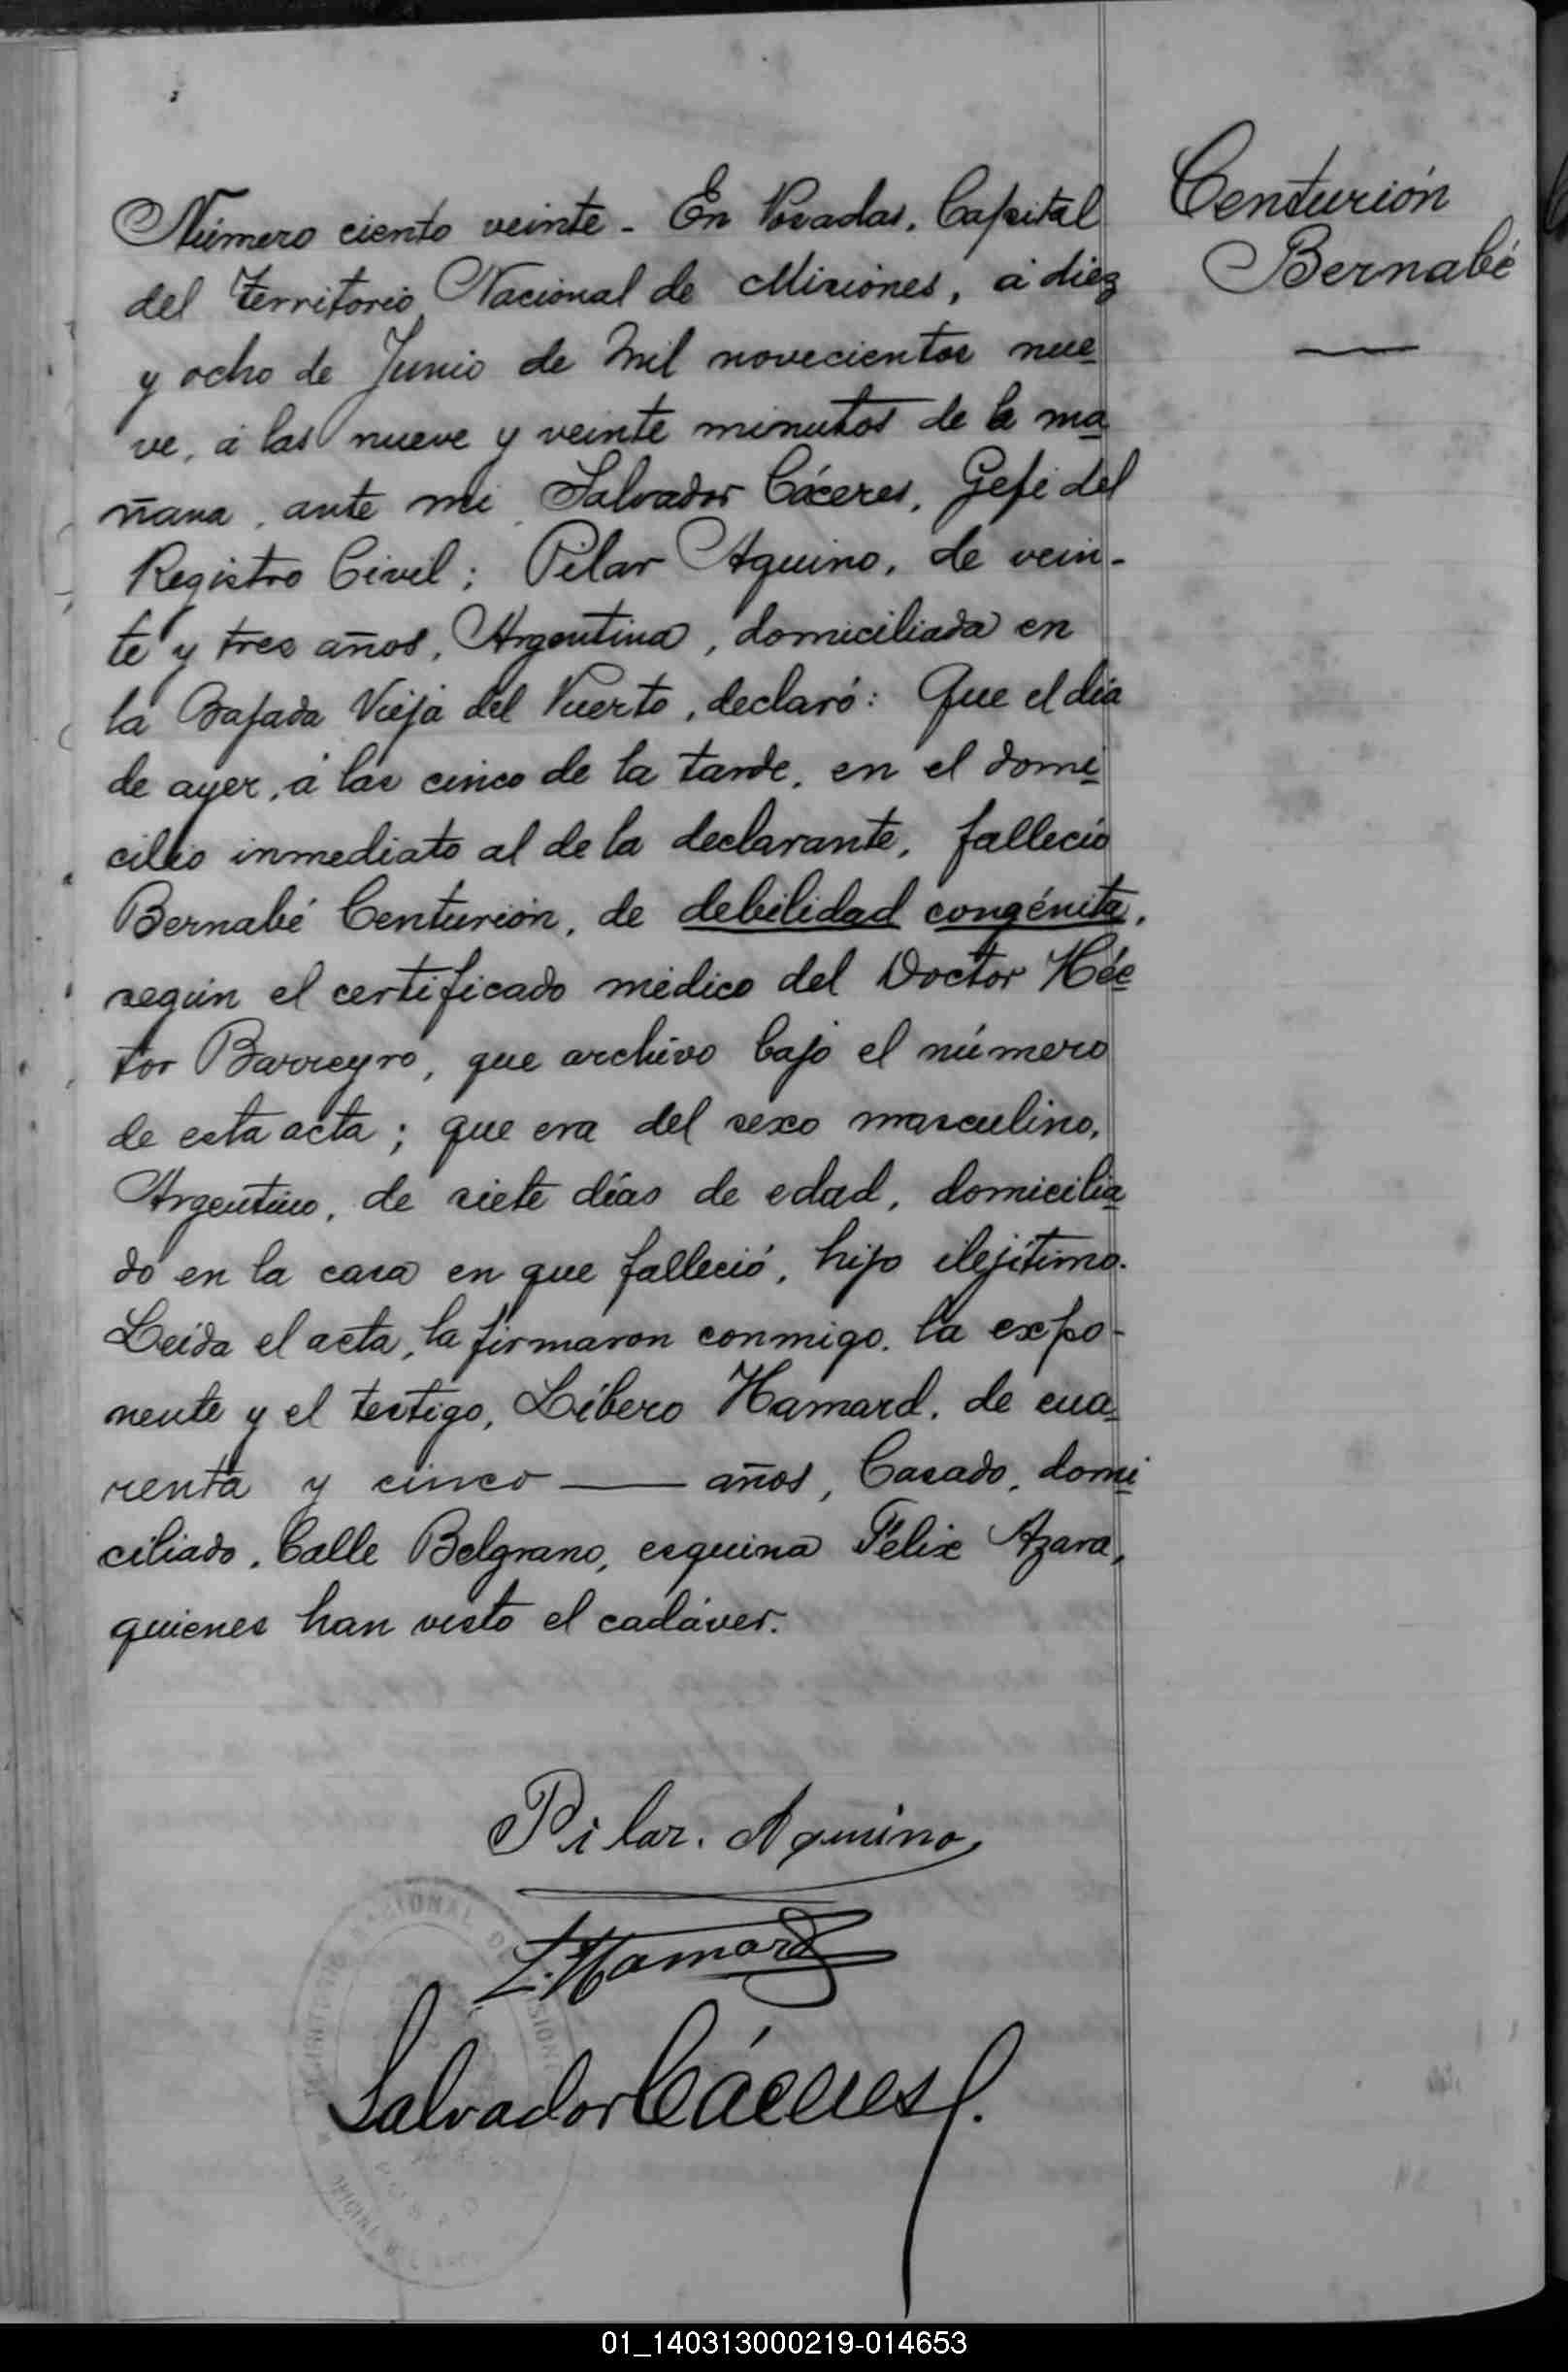 Centurión
Bernabé
Número ciento veinte - En Posadas, Capital
del Territorio Nacional de Misiones, á diez
y ocho de Junio de Mil novecientos nue
ve, á las nueve y veinte minutos de la ma
ñana, ante mi Salvador Cáceres, Gefe del
Registro Civil; Pilar Aquino, de vein-
te y tres años, Argentina, domiciliada en
la Bajada Vieja del Puerto, declaró: Que el día
de ayer, á las cinco de la tarde, en el domi
cilio inmediato al de la declarante, falleció
Bernabé Centurión, de debilidad congénita,
según el certificado médico del Doctor Héc
tor Barreyro, que archivo bajo el número
de esta acta; que era del sexo masculino,
Argentino, de siete días de edad, domicilia
do en la casa en que falleció, hijo ilejítimo.
Leída el acta, la firmaron conmigo, la expo-
nente y el testigo, Líbero Hamard, de cua
renta y cinco — años, Casado, domi
ciliado, Calle Belgrano, esquina Félix Azara,
quienes han visto el cadáver.
Pilar. Aquino
L. Hamard
Salvador Cáceres
01_140313000219-014653